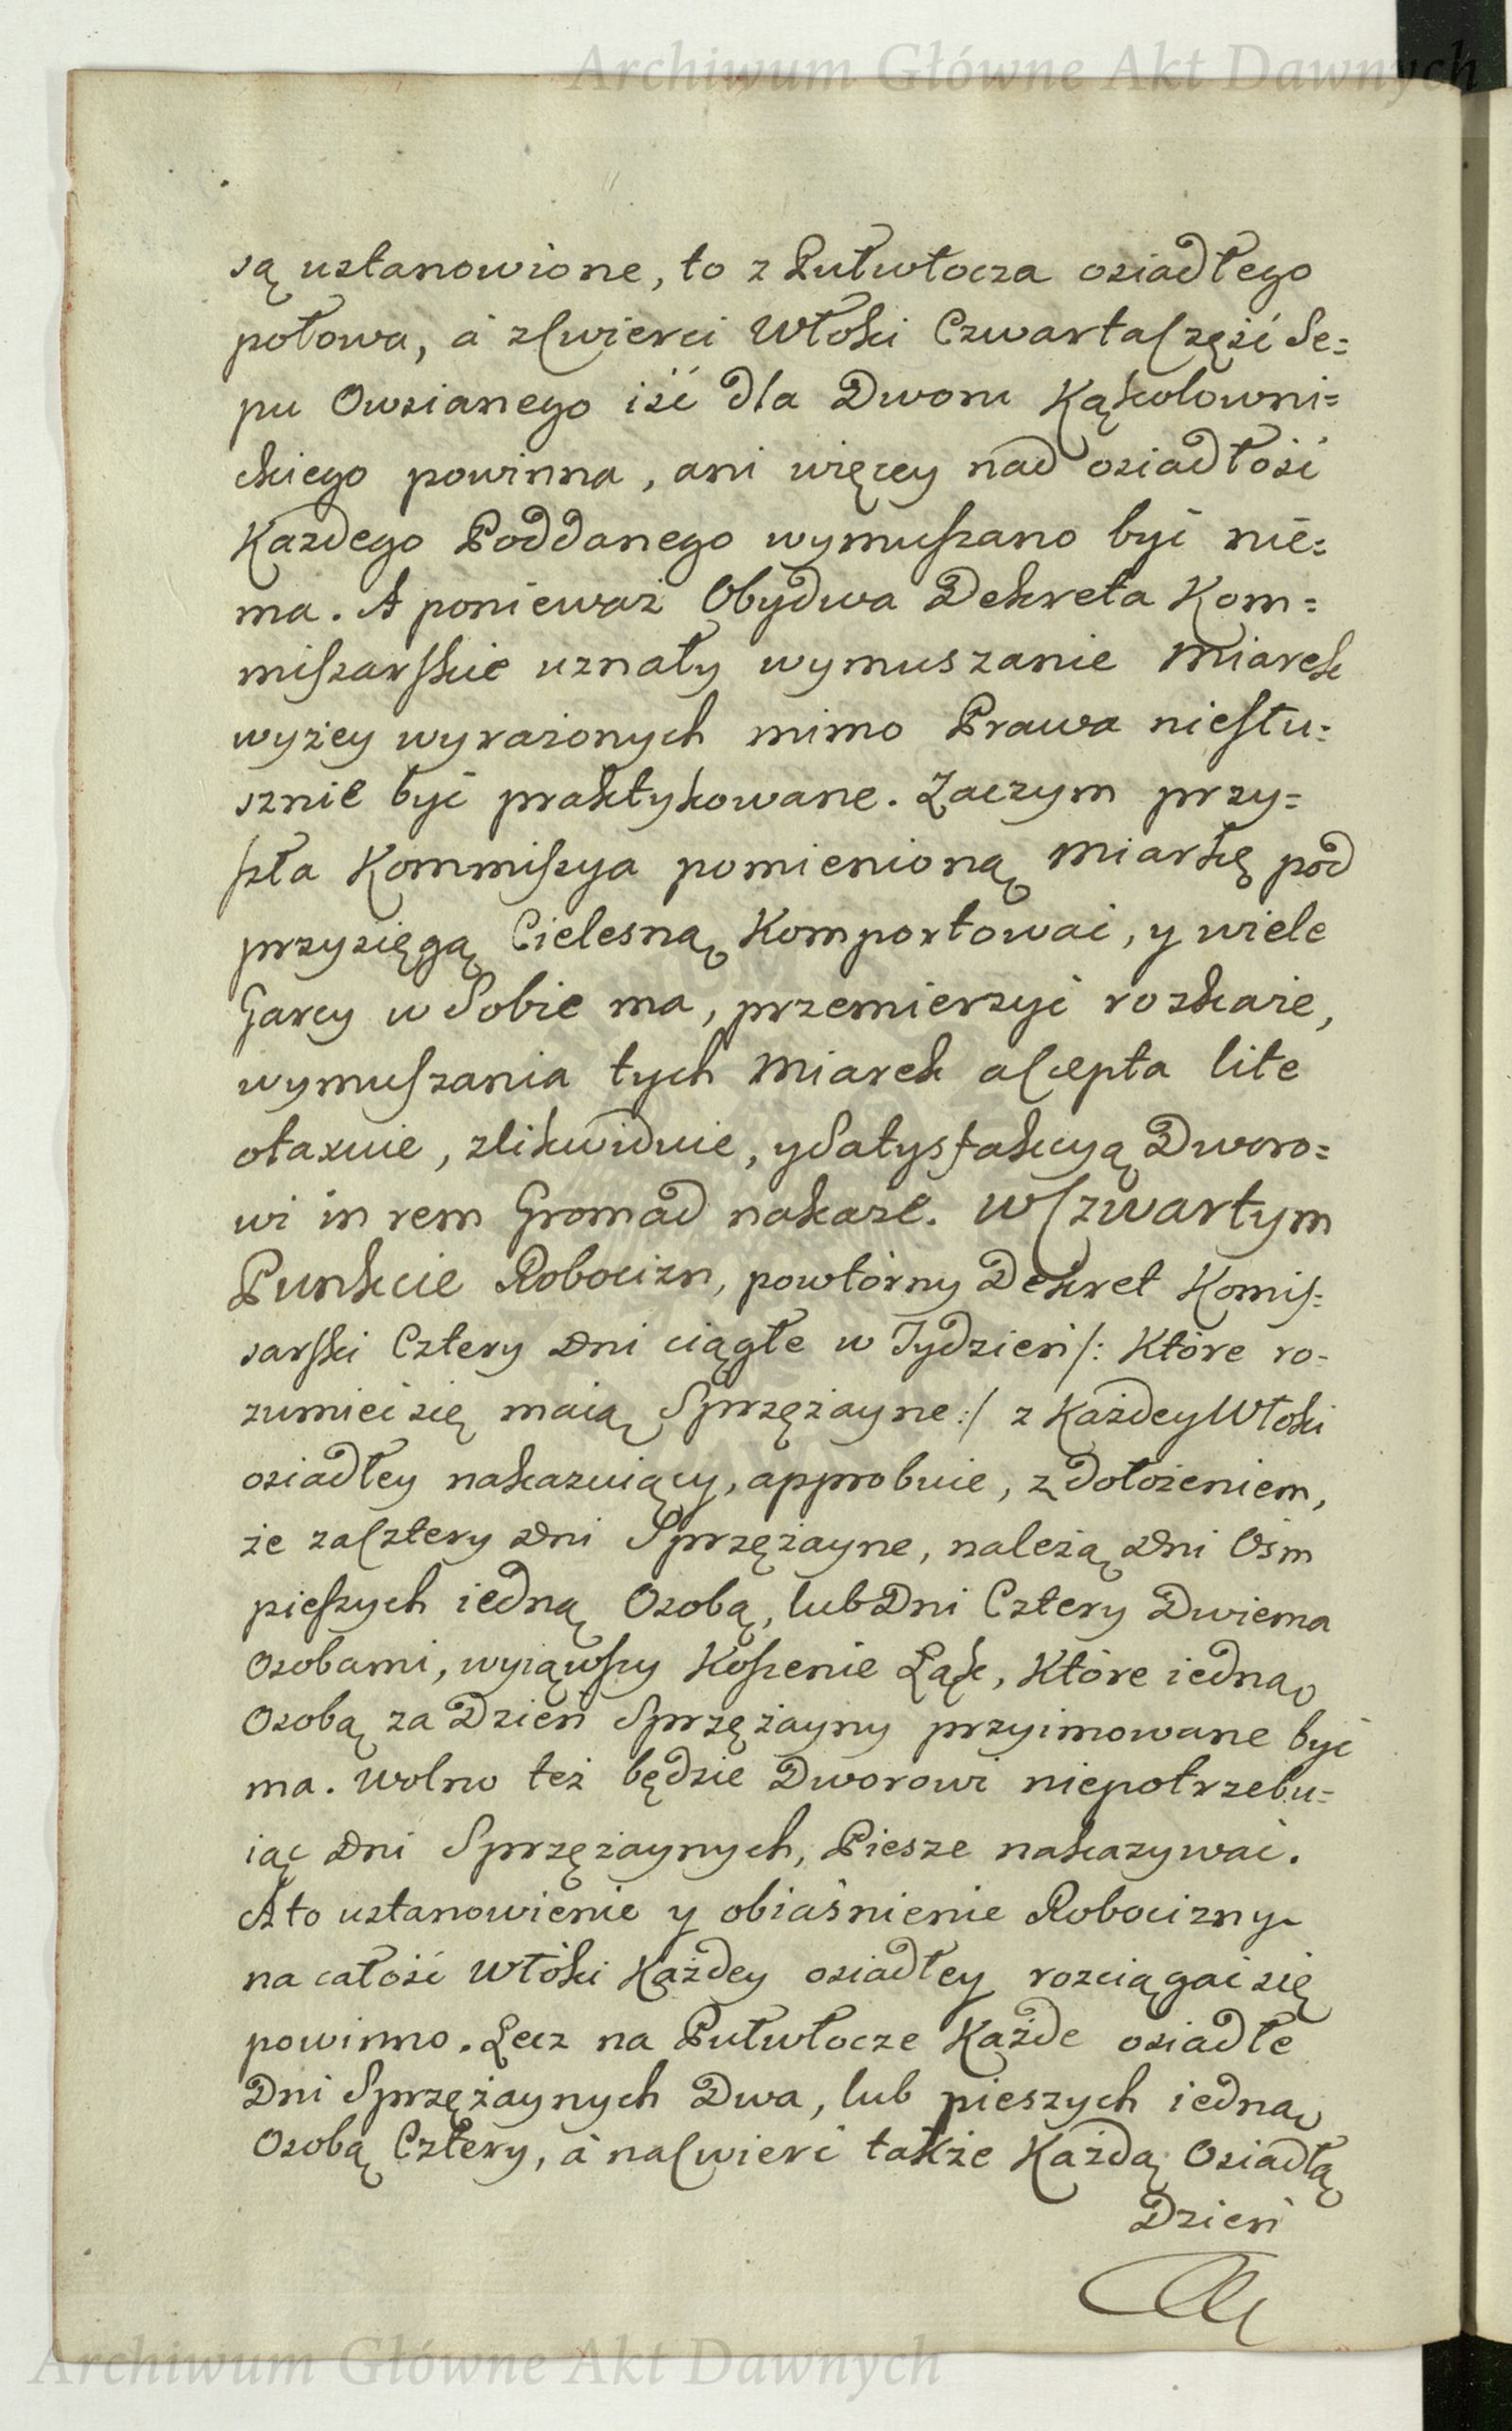 Archiwum Główne Akt Dawnych
są ustanowione, to z Pułwłocza osiadłego
połowa, á z Cwierci Włoki Czwarta Część Se=
pu Owsianego iść dla Dworu Kąkolowni=
ckiego powinna, ani więcey nad osiadłość
Kazdego Poddanego wymuszano być nie=
ma. A ponieważ Obydwa Dekreta Kom=
miszarskie uznały wymuszanie Miarek
wyżey wyrażonych mimo Prawa niesłu=
sznie być praktykowane. Zaczym przy=
szła Kommiszya pomienioną Miarkę pod
przysięgą Cielesną Komportować, y wiele
Garcy w Sobie ma, przemierzyć roskaże,
wymuszania tych Miarek a Cepta lite
otaxuie, zlikwiduie, y Satysfakcyą Dworo=
wi in rem Gromad nakaże. W Czwartym
Punkcie Robocizn, powtórny Dekret Komis=
sarski Cztery Dni ciągłe w Tydzień /: Które ro=
zumieć się maią Sprzężayne :/ z Każdey Włoki
osiadłey nakazuiący, approbuie, z dołożeniem,
że za Cztery Dni Sprzężayne, należą Dni Ośm
pieszych iedną Osobą, lub Dni Cztery Dwiema
Osobami, wyiąwszy Koszenie Łąk, Które iedną
Osobą za Dzień Sprzężayny przyimowane być
ma. Wolno też będzie Dworowi niepotrzebu=
iąc Dni Sprzężaynych, Piesze nakazywać.
A to ustanowienie y obiaśnienie Robocizny
na całość Włóki Każdey osiadłey rozciągać się
powinno. Lecz na Pułwłocze Każde osiadłe
Dni Sprzężaynych Dwa, lub pieszych iedną
Osobą Cztery, á na Cwierć także Każdą Osiadłą
Dzień
Archiwum Główne Akt Dawnych